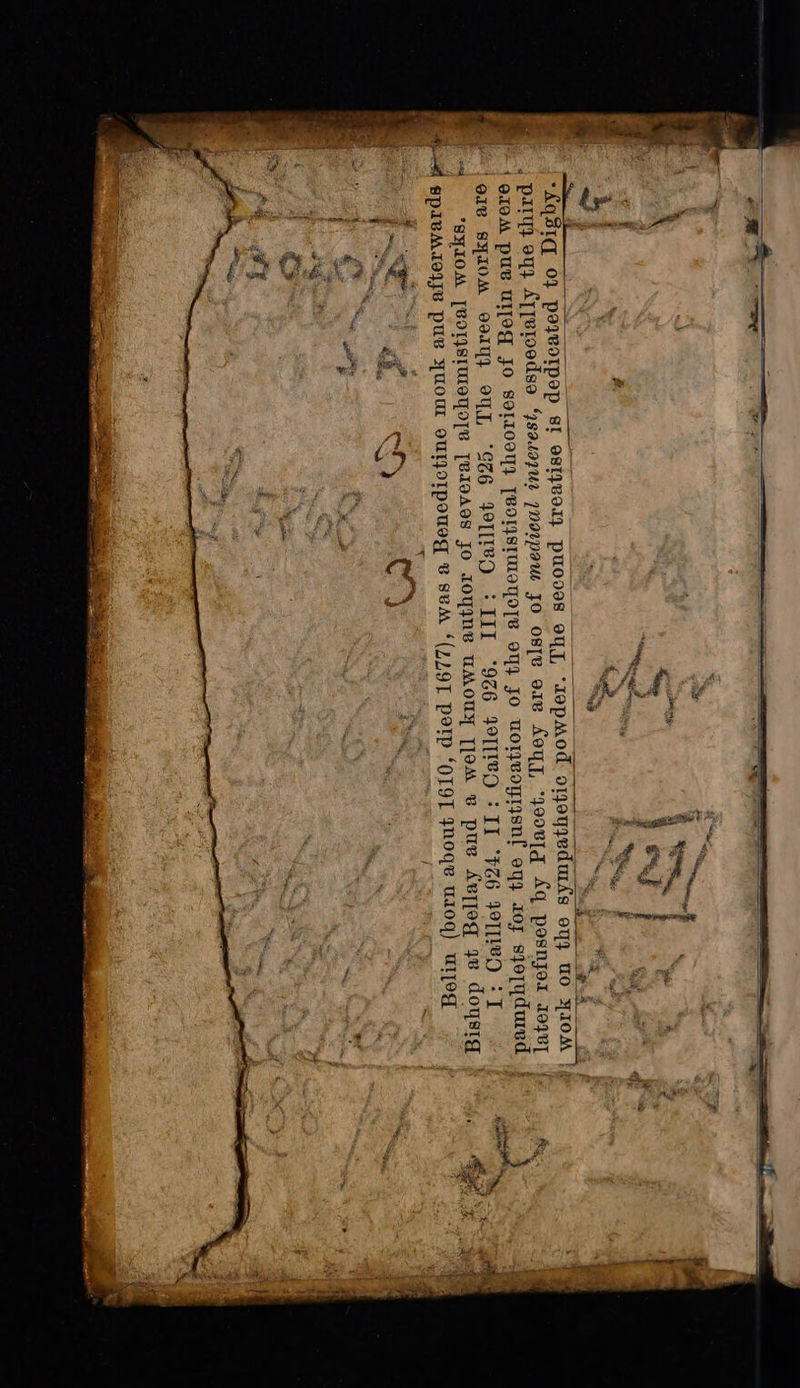 Belin (born about 1610, died 1677), was a Benedictine monk and afterwards
Bishop at Bellay and a well known author of several alchemistical works.
I: Caillet 924. II: Caillet 926. III: Caillet 925. The three works are
pamphlets for the justification of the alchemistical theories of Belin and were
later refused by Placet. They are also of medical interest, especially the third
work on the sympathetic powder. The second treatise is dedicated to Digby.